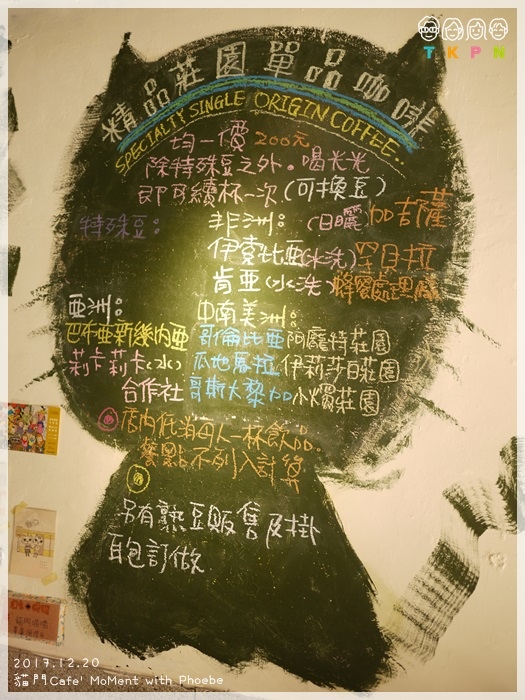 TKPN
精品莊園單品咖啡
SPECIALTY SINGLE ORIGIN COFFEE..
均一價200元
除特殊豆之外。喝光光
即可續杯一次(可換豆)
特殊豆:
非洲:
(日曬) 加吉薩
伊索比亞(水洗)罕貝拉
肯亞(水洗)蜂蜜處理廠
亞洲:
中南美洲:
巴布亞新幾內亞 哥倫比亞 阿麗特莊園
莉卡莉卡(水) 瓜地馬拉 伊莉莎白莊園
合作社 哥斯大黎加 小燭莊園
店內低消每人一杯飲品。
餐點不列入計算
另有熟豆販售及掛
耳包訂做
2017.12.20
貓門Cafe' MoMent with Phoebe